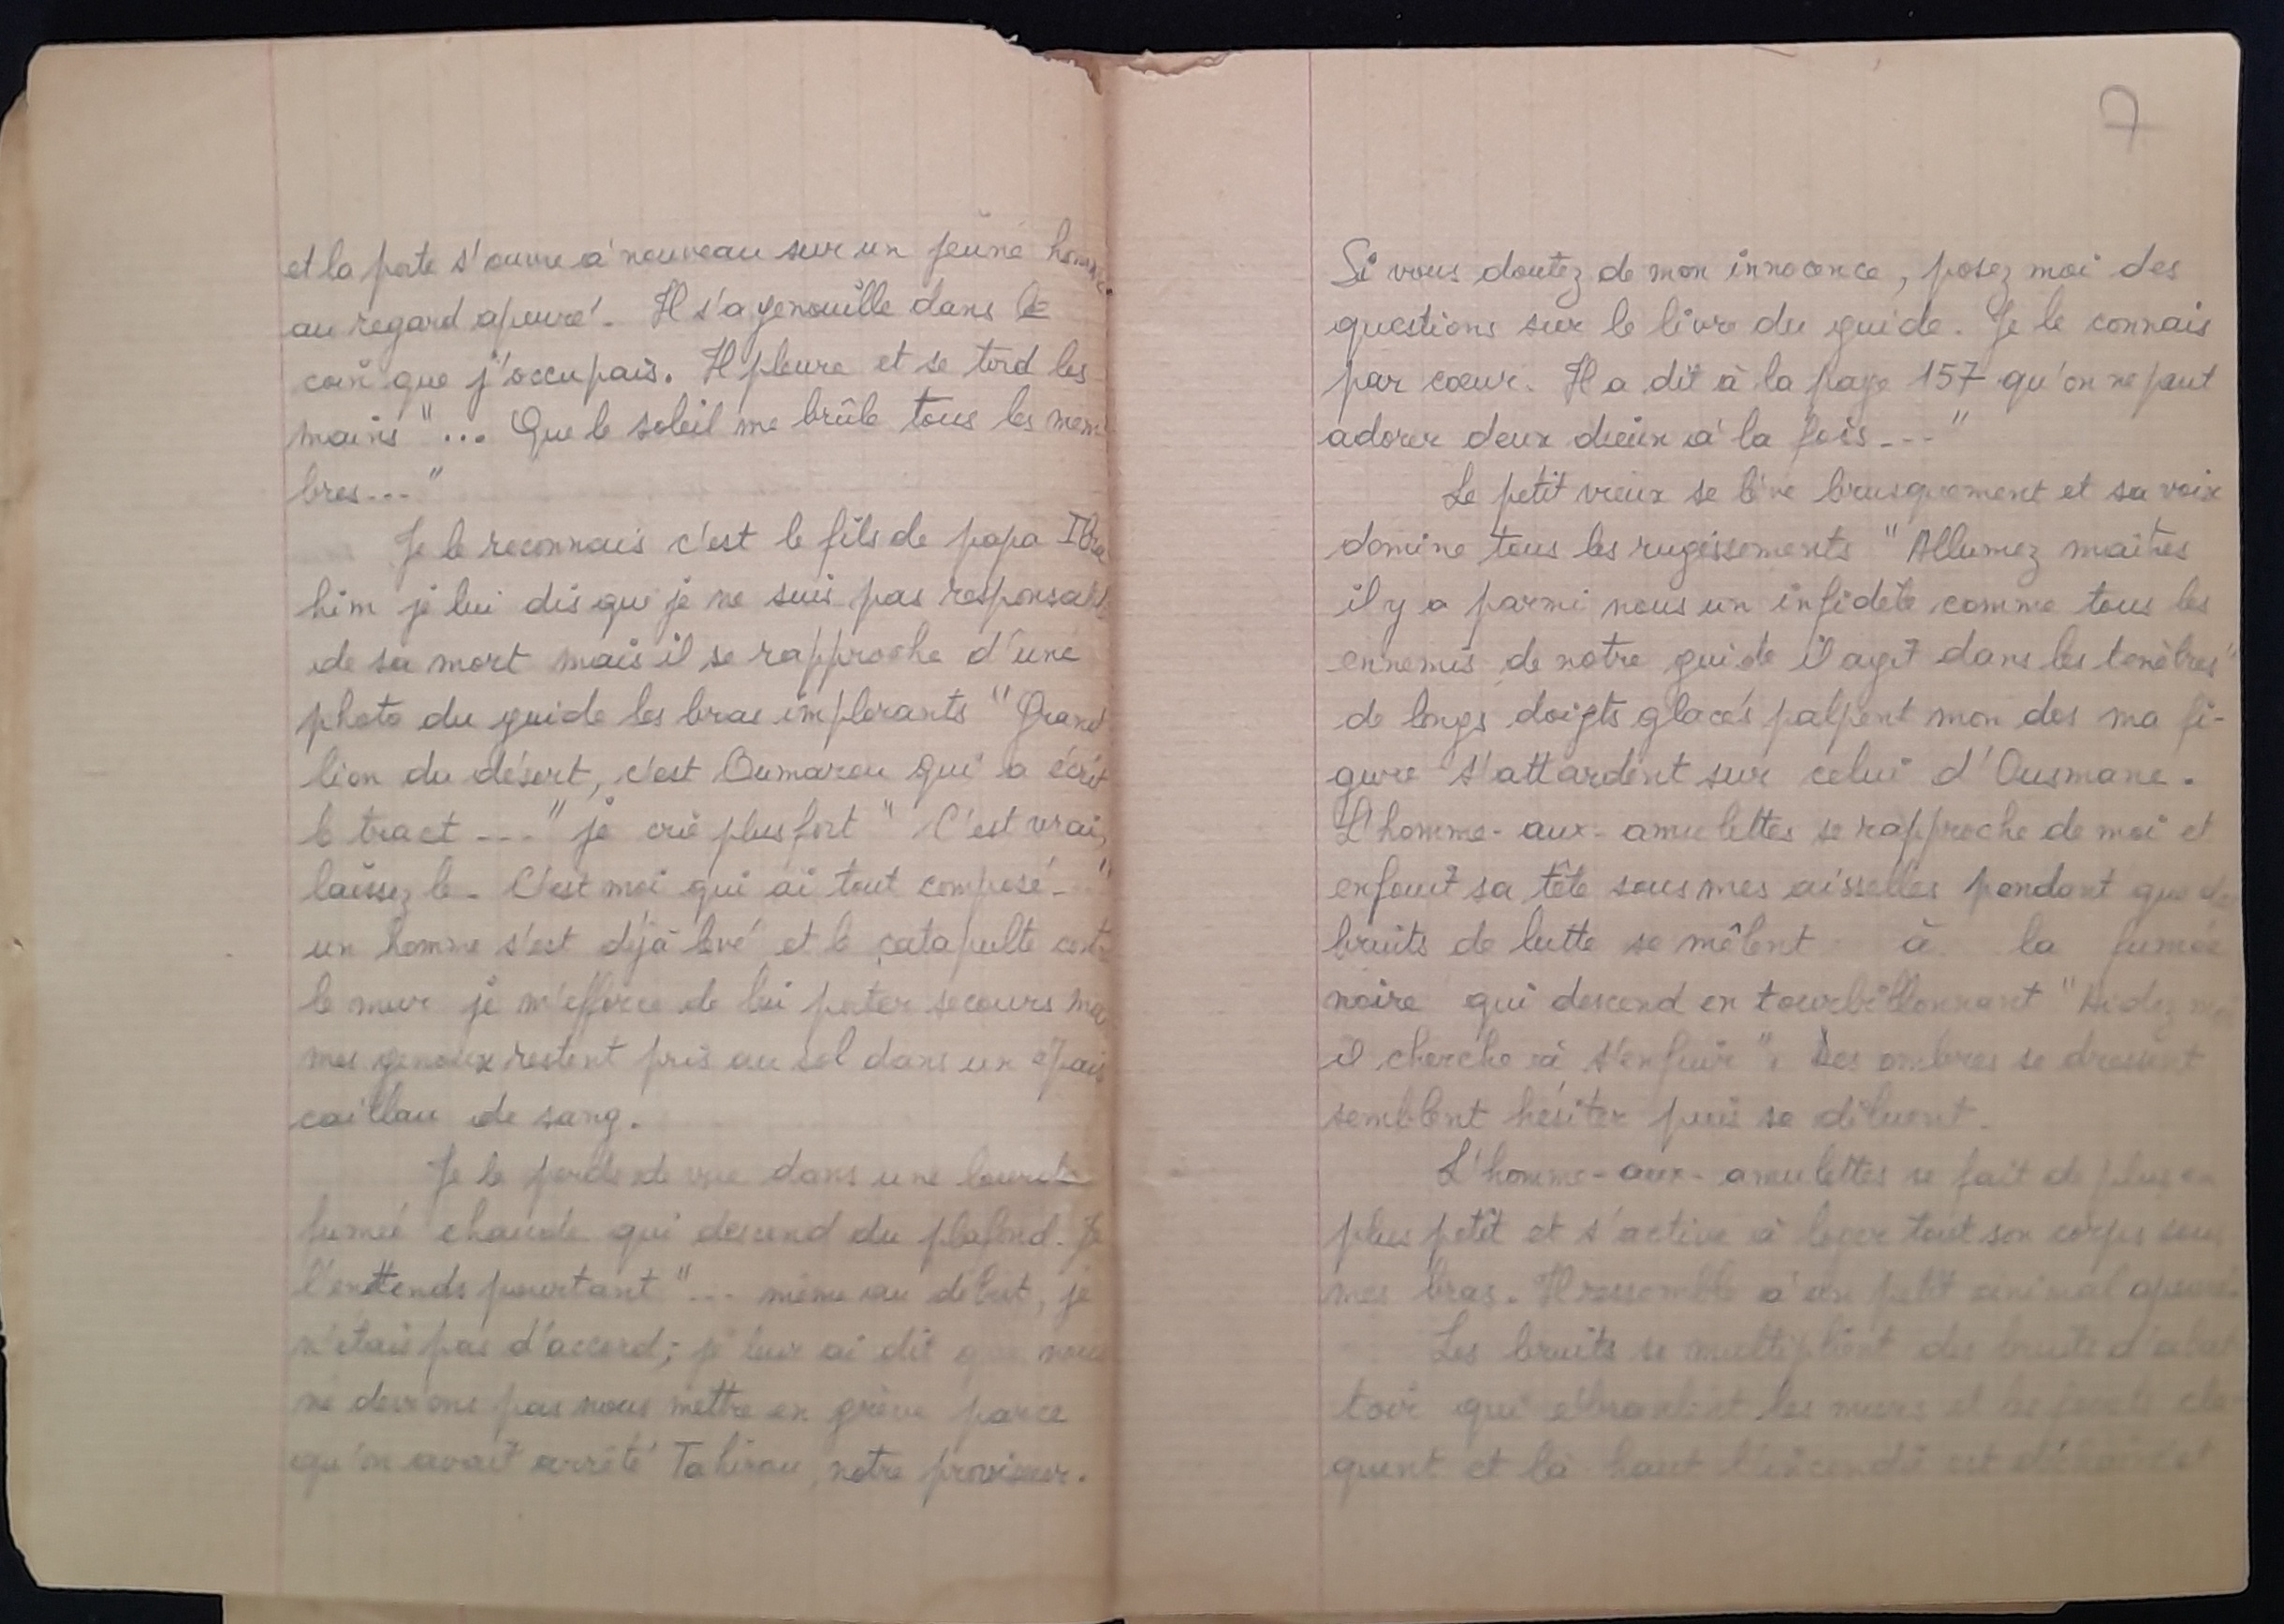 et la porte s'ouvre à nouveau sur un jeune homme
au regard apeuré. Il s'agenouille dans le
coin que j'occupais. Il pleure et se tord les
mains "... Que le soleil me brûle tous les mem
bres..."
Je le reconnais c'est le fils de papa Ibra
him je lui dis que je ne suis pas responsable
de sa mort mais il se rapproche d'une
photo du guide les bras implorants "Grand
lion du désert, c'est Oumarou qui a écrit
le tract ..." je crie plus fort "C'est vrai,
laissez le. C'est moi qui ai tout composé..."
un homme s'est déjà levé et le catapulte contre
le mur je m'efforce de lui porter secours mais
mes genoux restent pris au sol dans un épais
caillau de sang.
Je le perds de vue dans une lourde
fumée chaude qui descend du plafond. Je
l'entends pourtant "... même au début, je
n'étais pas d'accord; je leur ai dit que nous
ne devions pas nous mettre en grève parce
qu'on avait arrêté Tahirou, notre proviseur.
7
Si vous doutez de mon innocence, posez moi des
questions sur le livre du guide. Je le connais
par cœur. Il a dit à la page 157 qu'on ne peut
adorer deux dieux à la fois..."
Le petit vieux se lève brusquement et sa voix
domine tous les rugissements "Allumez maîtres
il y a parmi nous un infidèle comme tous les
ennemis de notre guide il agit dans les tenèbres"
de longs doigts glacés palpent mon dos ma fi-
gure s'attardent sur celui d'Ousmane.
L'homme-aux-amulettes se rapproche de moi et
enfouit sa tête sous mes aisselles pendant que des
bruits de lutte se mêlent à la fumée
noire qui descend en tourbillonnant "Aidez moi
il cherche à s'enfuir". Des ombres se dressent
semblent hésiter puis se diluent.
L'homme-aux-amulettes se fait de plus en
plus petit et s'active à loger tout son corps sous
mes bras. Il ressemble à un petit animal apeuré.
Les bruits se multiplient des bruits d'abat
toir qui ébranlent les murs et les cla
quent et là-haut l'incendie est déchaîné et